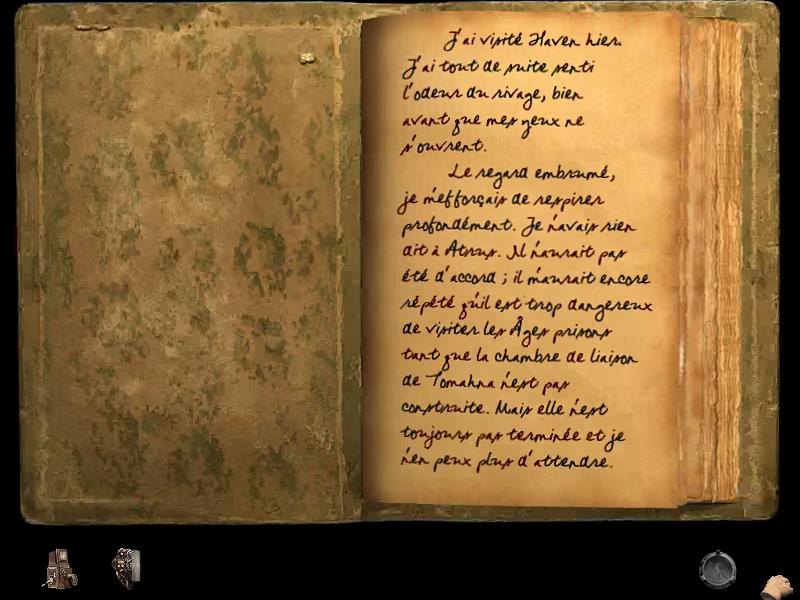 J'ai visité Haven hier.
J'ai tout de suite senti
l'odeur du rivage, bien
avant que mes yeux ne
s'ouvrent.
Le regard embrumé,
je m'efforçais de respirer
profondément. Je n'avais rien
dit à Atrus. Il n'aurait pas
été d'accord ; il m'aurait encore
répété qu'il est trop dangereux
de visiter les Âges prisons
tant que la chambre de liaison
de Tomahna n'est pas
construite. Mais elle n'est
toujours pas terminée et je
n'en peux plus d'attendre.